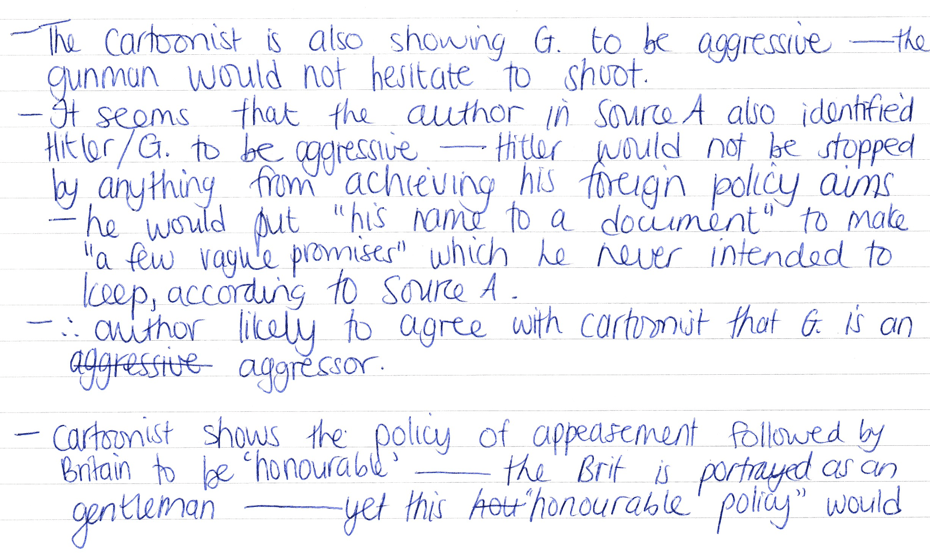 — The cartoonist is also showing G. to be aggressive — the
gunman would not hesitate to shoot.
— It seems that the author in Source A also identified
Hitler/G. to be aggressive — Hitler would not be stopped
by anything from achieving his foreign policy aims
— he would put "his name to a document" to make
"a few vague promises" which he never intended to
keep, according to Source A.
— ∴ author likely to agree with cartoonist that G. is an
aggressive aggressor.
— Cartoonist shows the policy of appeasement followed by
Britain to be 'honourable' — the Brit is portrayed as an
gentleman — yet this hou "honourable policy" would